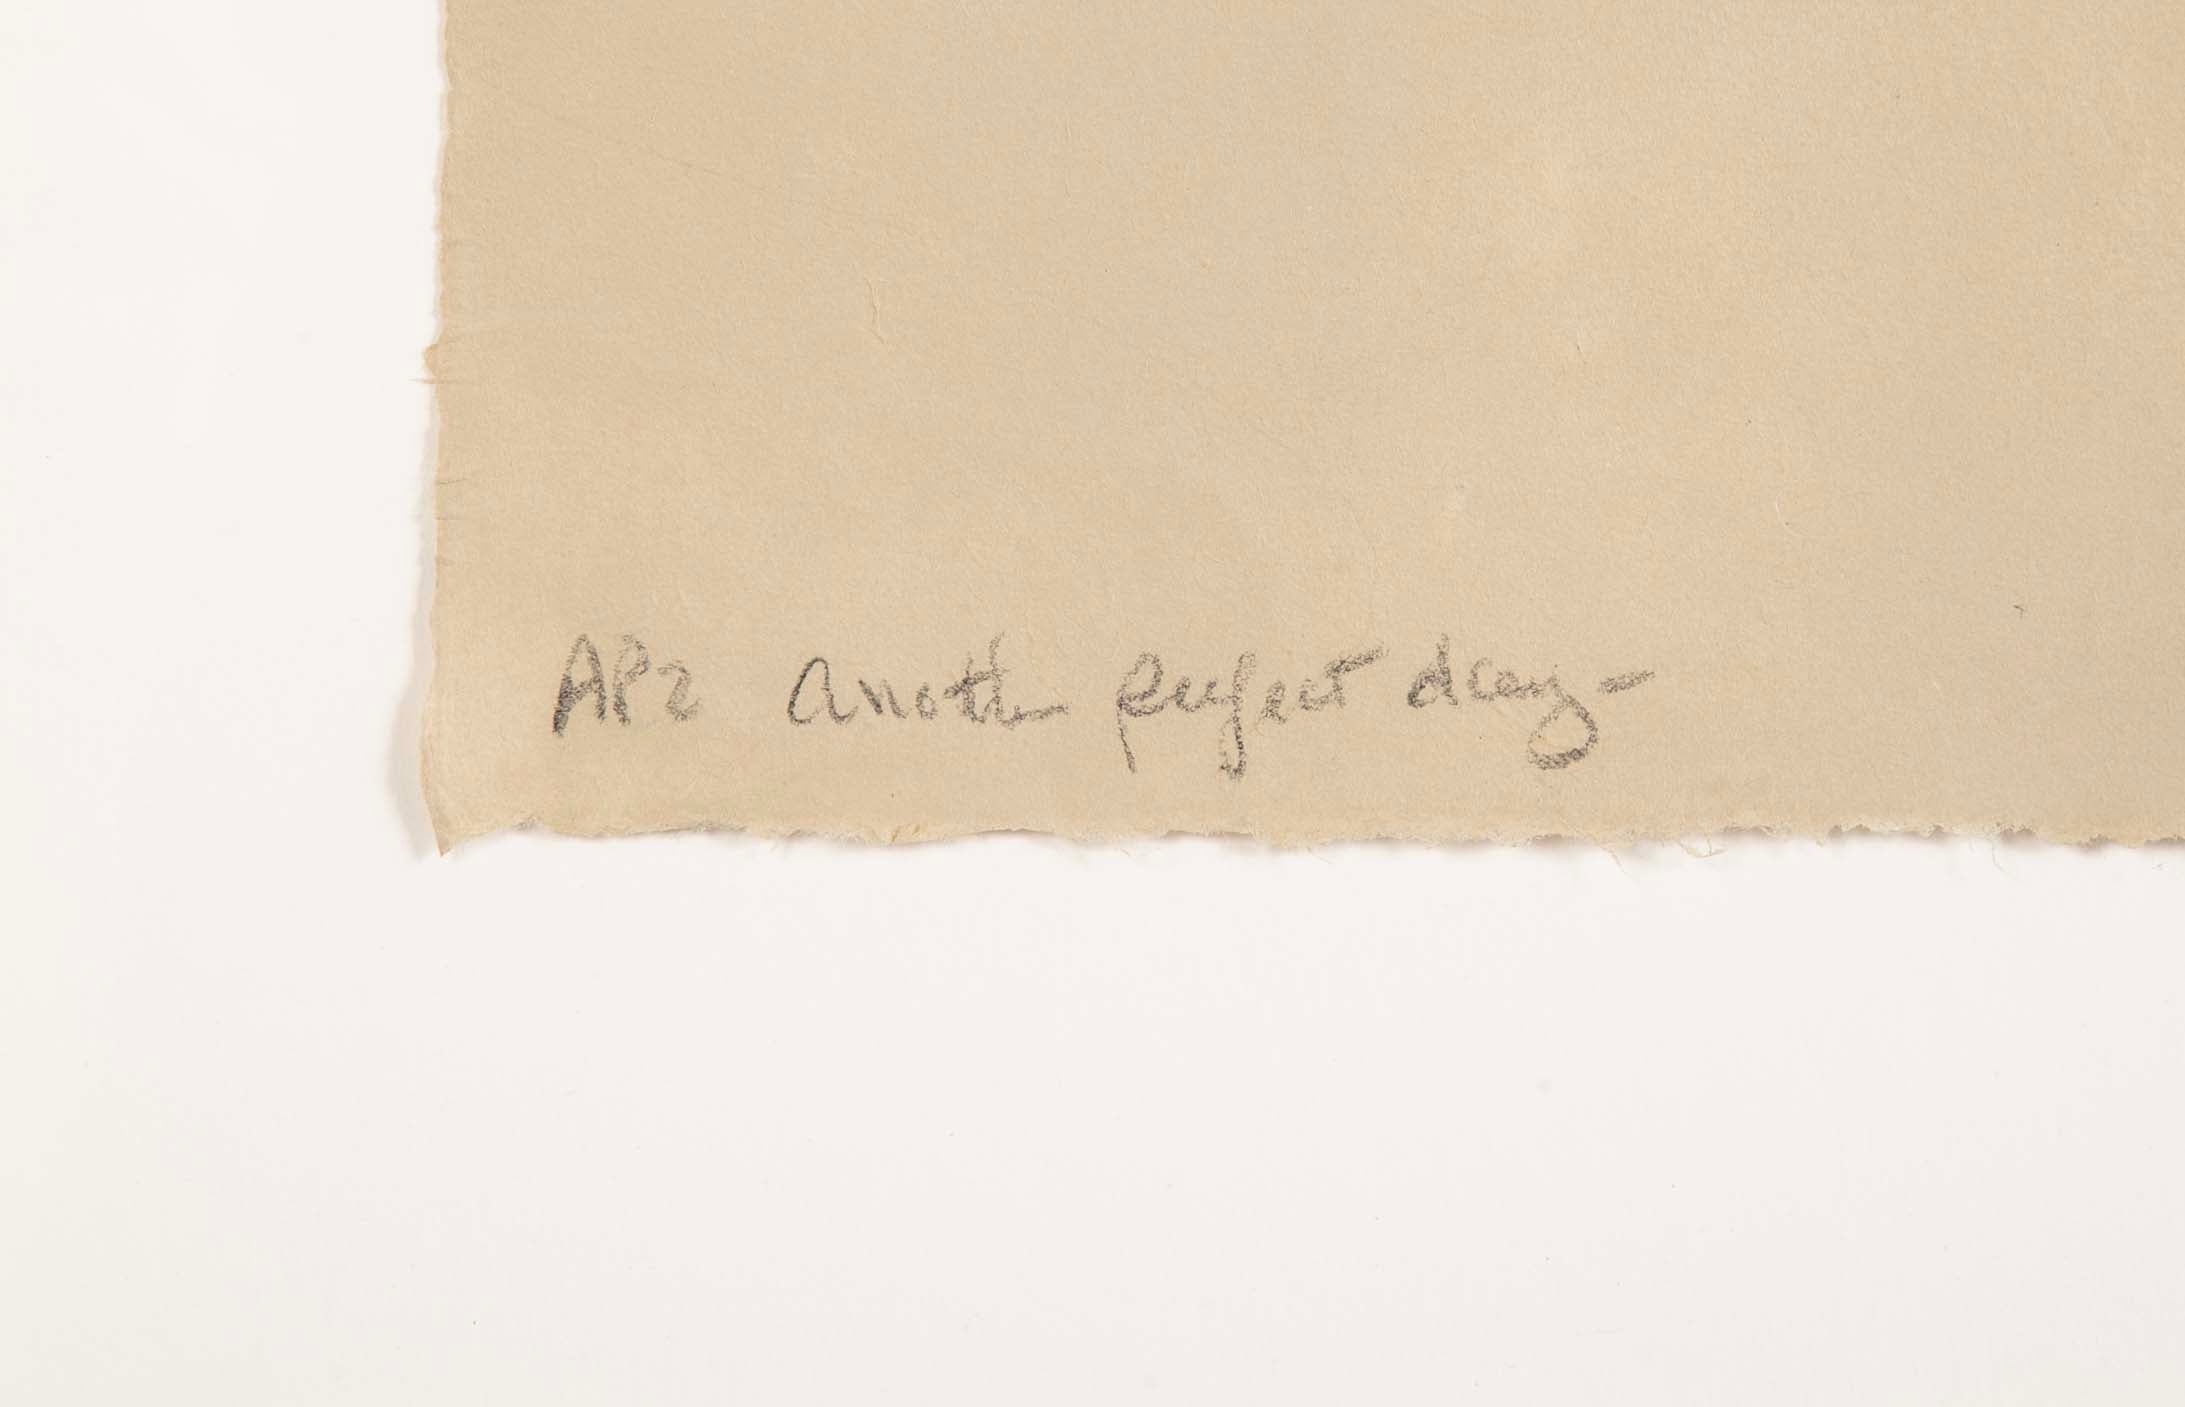 AP2 Another perfect day-